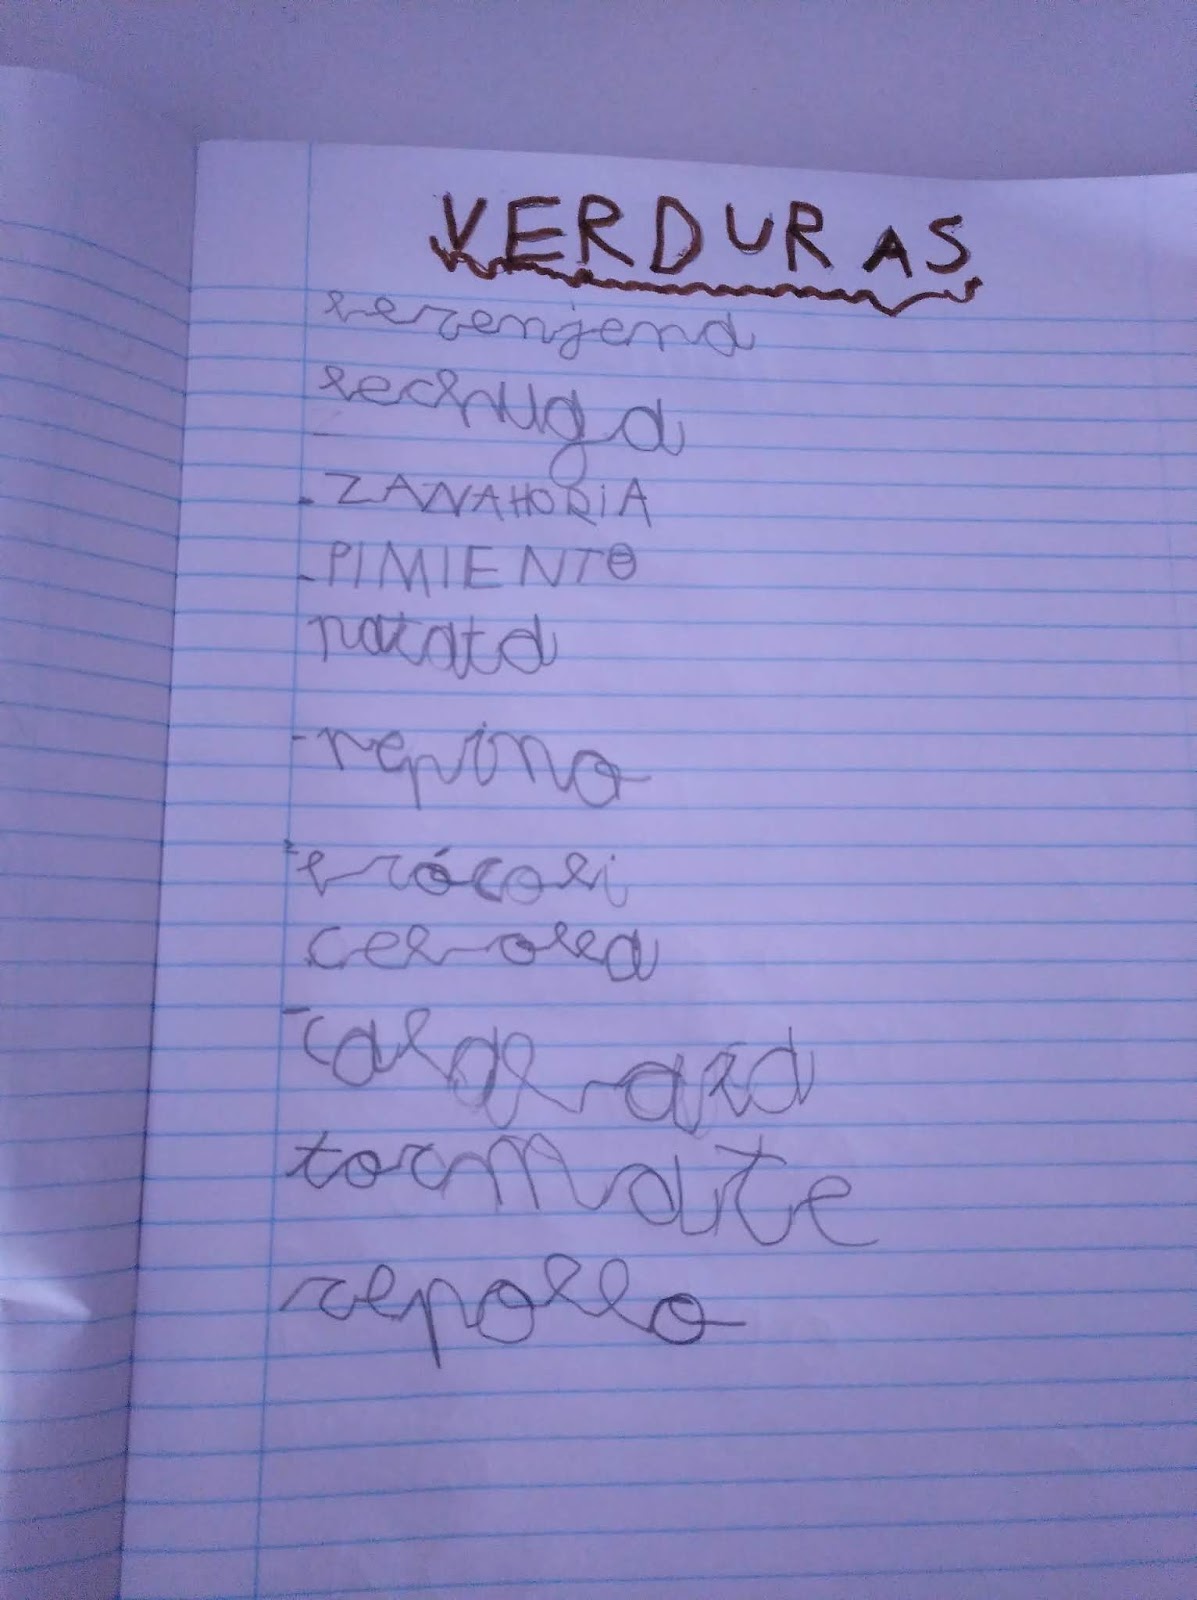 VERDURAS
berenjena
lechuga
- ZANAHORIA
- PIMIENTO
patata
- pepino
- brócoli
cebolla
- calabaza
tormate
repollo